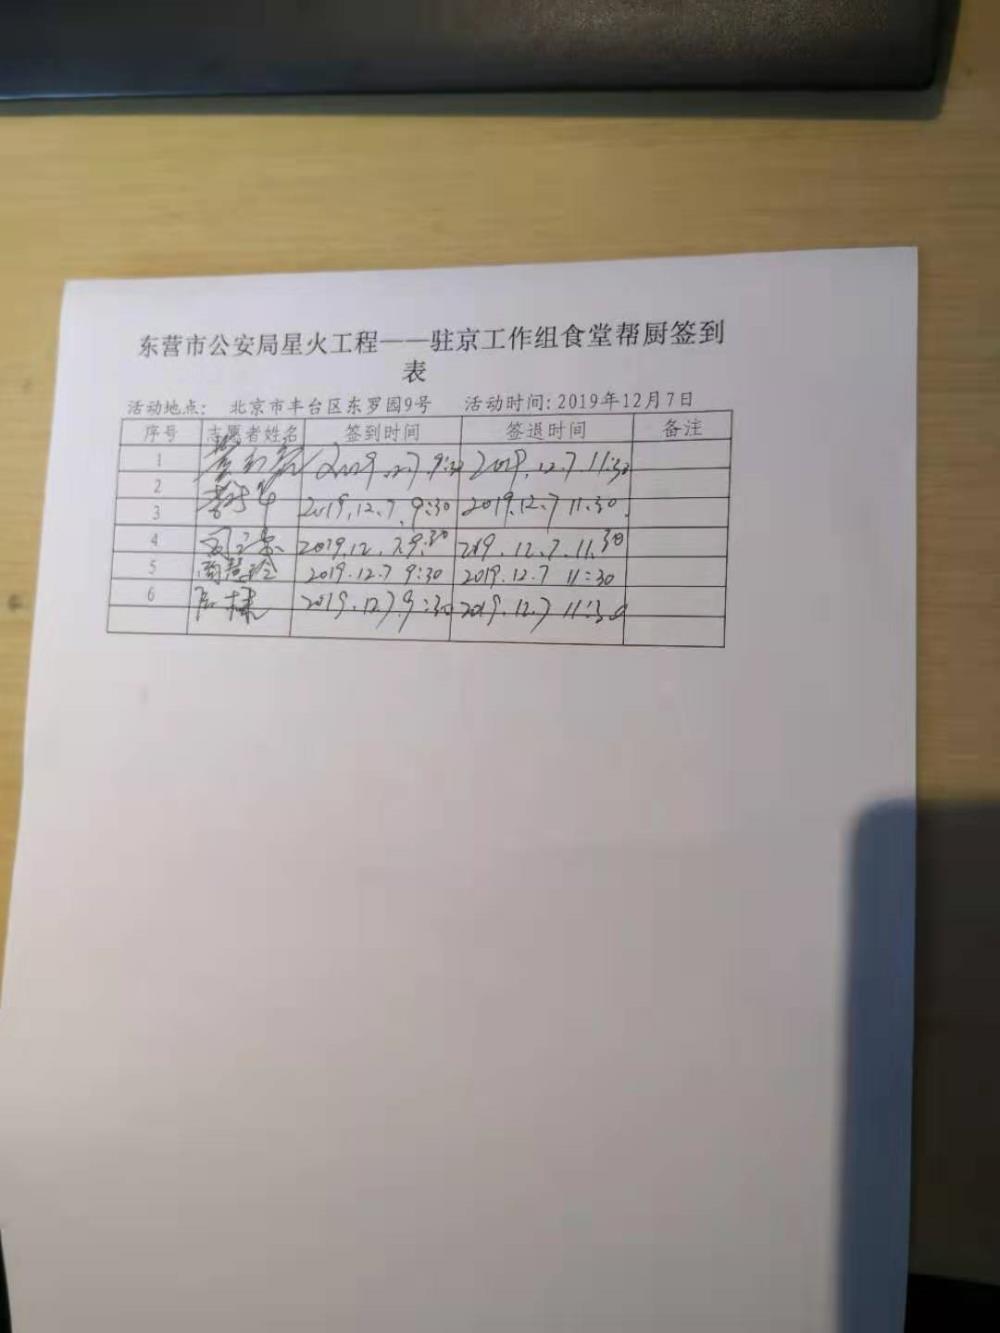 东营市公安局星火工程——驻京工作组食堂帮厨签到
表
活动地点： 北京市丰台区东罗园9号 活动时间：2019年12月7日
序号 志愿者姓名 签到时间 签退时间 备注
1 2019.12.7.9:30 2019.12.7.11:30
2
3 2019.12.7.9:30 2019.12.7 11:30.
4 2019.12.7.9:30 2019.12.7.11:30
5 2019.12.7 9:30 2019.12.7 11:30
6 2019.12.7.9:30 2019.12.7 11:30